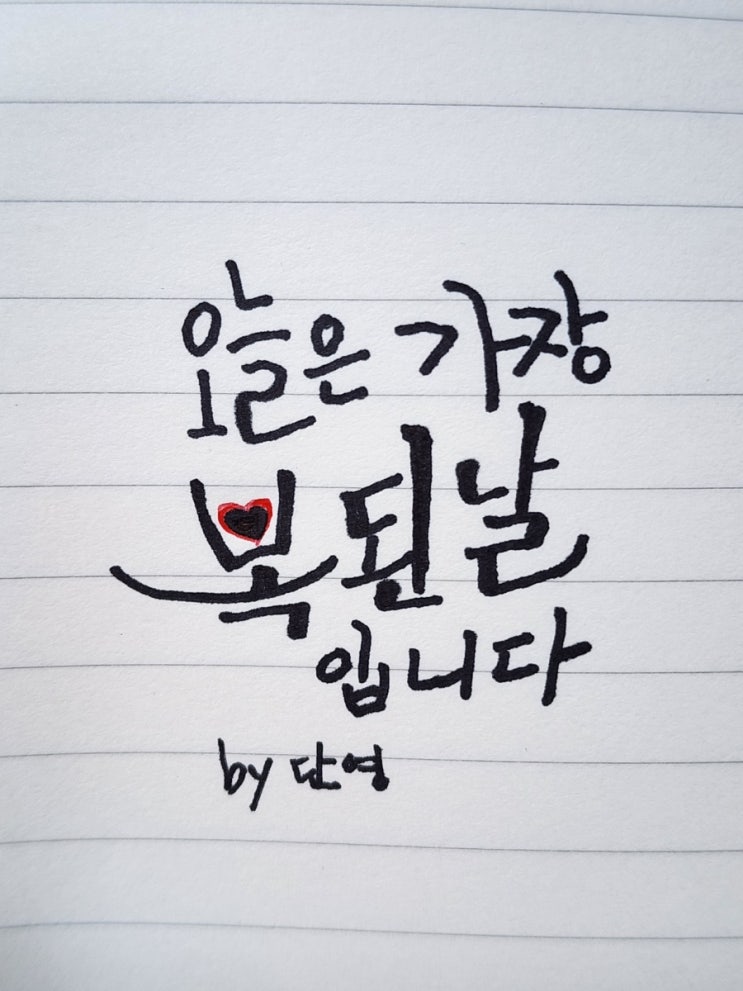 오늘은 가장
복된날
입니다
by 단영